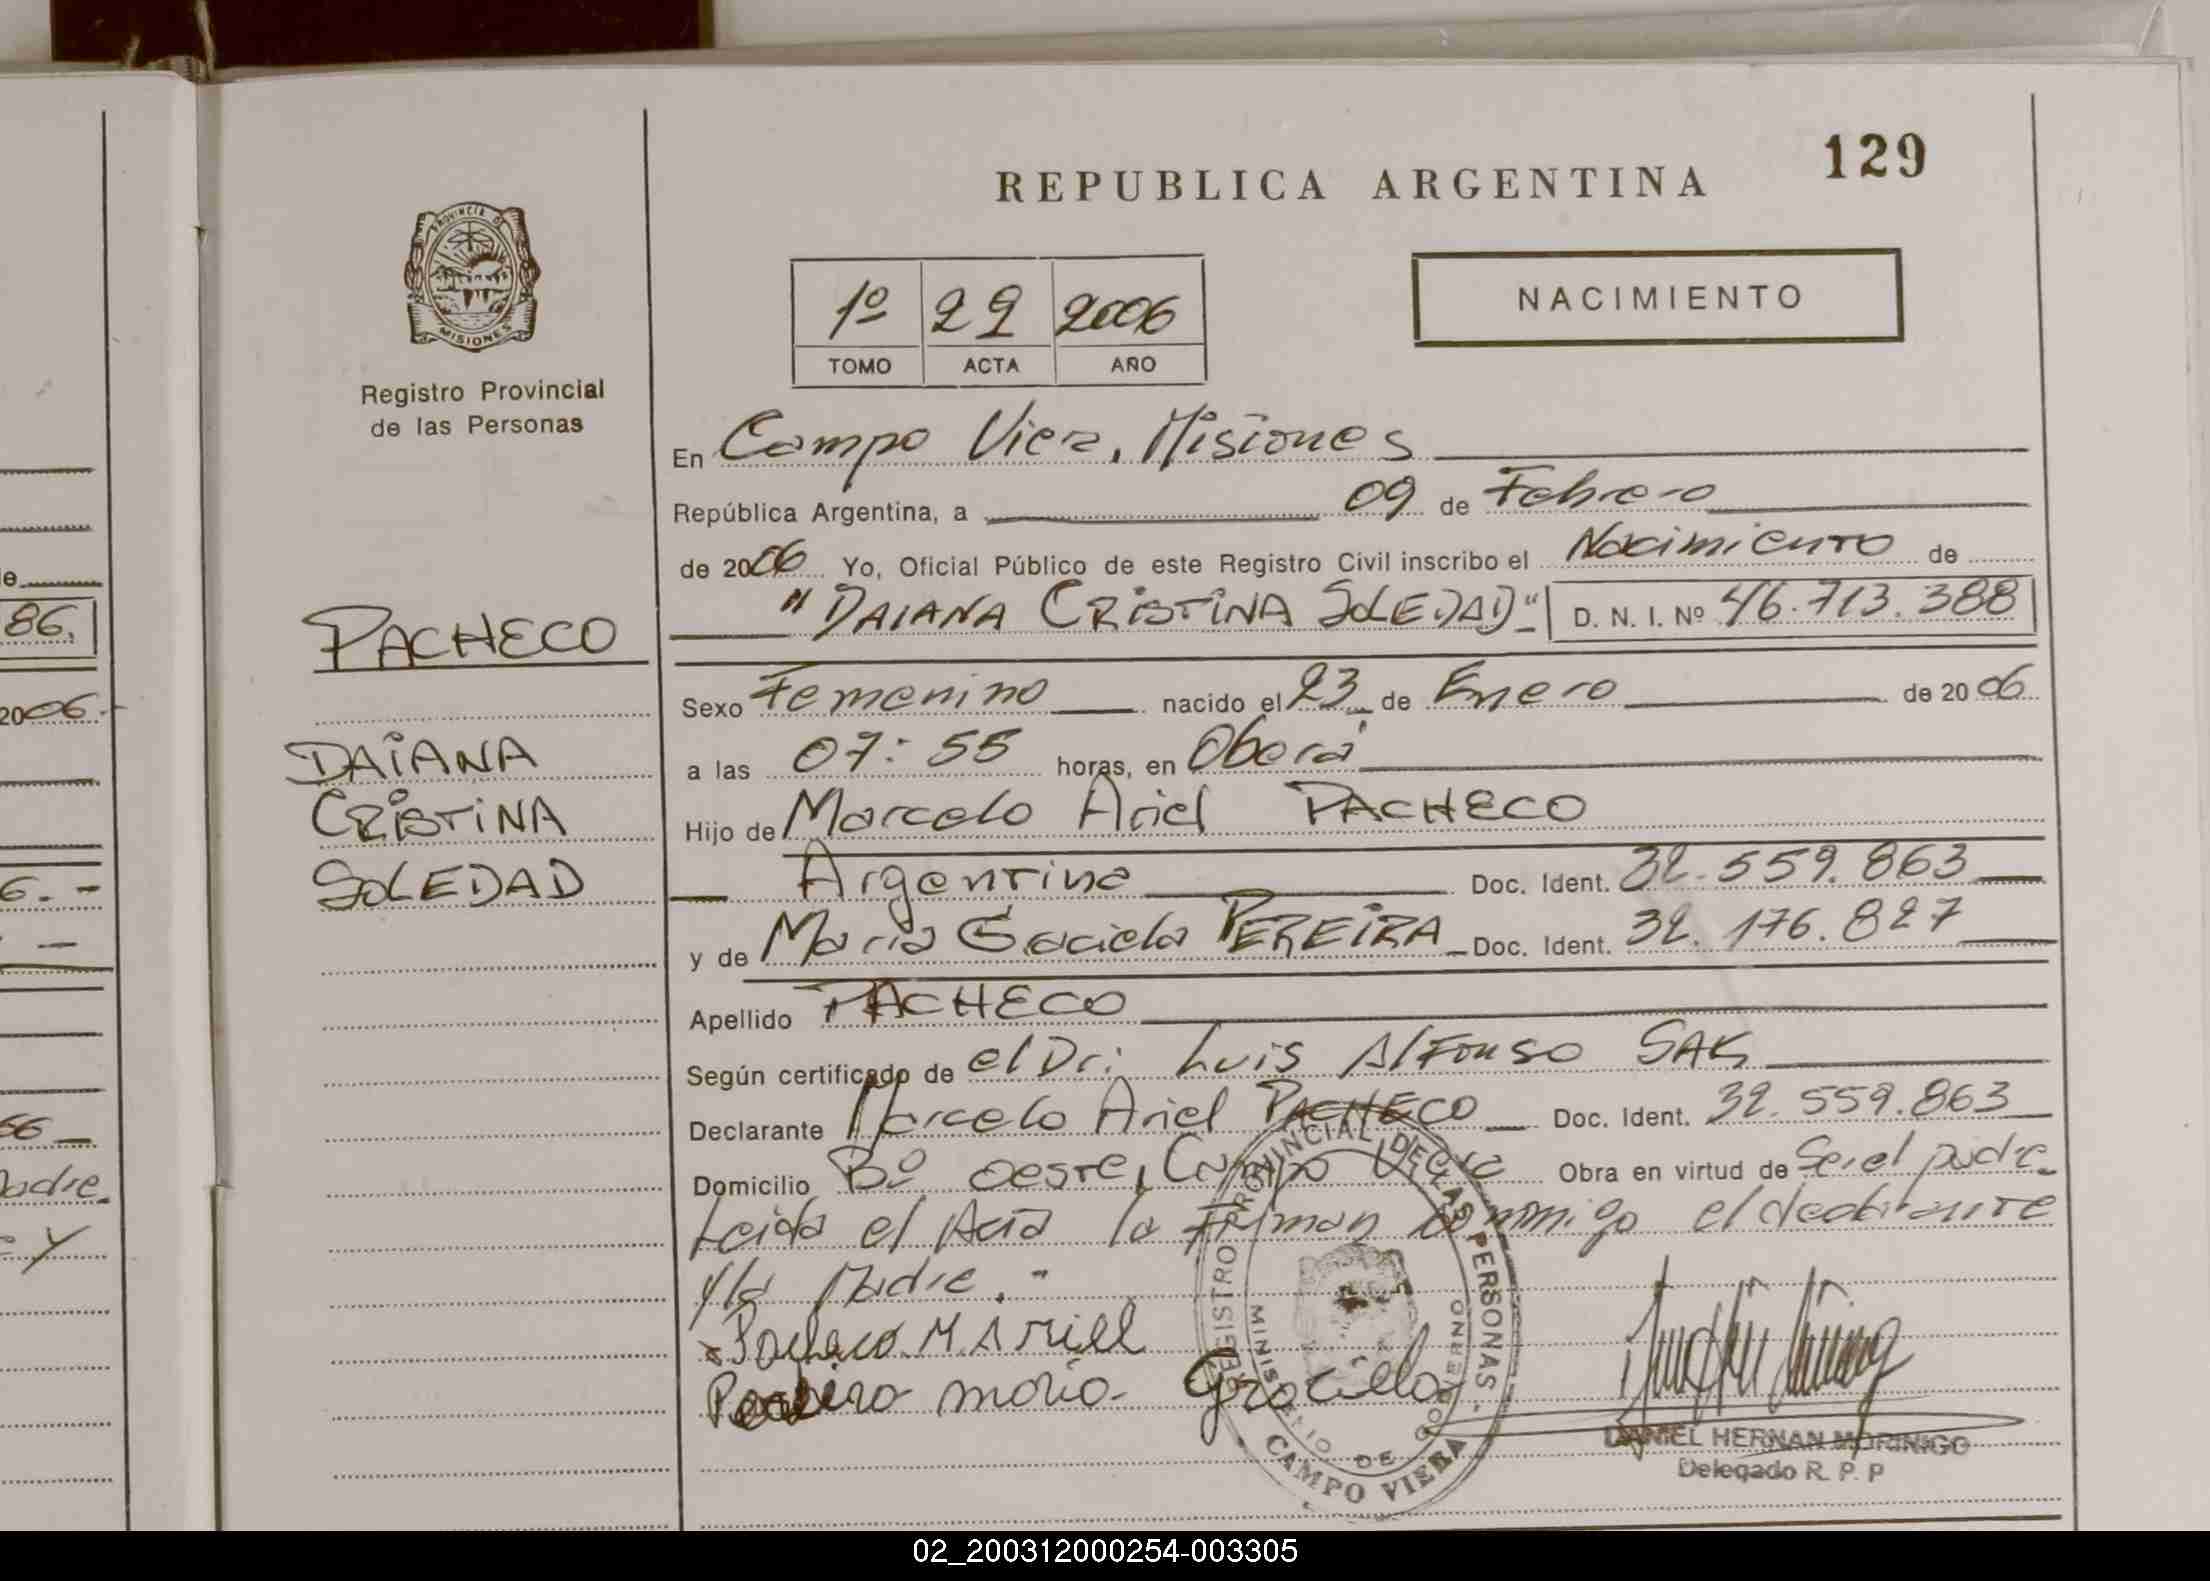 REPUBLICA ARGENTINA
129
PROVINCIA DE
MISIONES
Registro Provincial
de las Personas
1º 22 2006
TOMO ACTA AÑO
NACIMIENTO
En Campo Viera, Misiones
República Argentina, a 09 de Febrero
de 2006 Yo, Oficial Público de este Registro Civil inscribo el Nacimiento de
"DAIANA CRISTINA SOLEDAD" D. N. I. Nº 46.713.388
PACHECO
DAIANA
CRISTINA
SOLEDAD
Sexo Femenino nacido el 23 de Enero de 2006
a las 07:55 horas, en Oberá
Hijo de Marcelo Ariel PACHECO
Argentino Doc. Ident. 32.559.863
y de María Graciela PEREIRA Doc. Ident. 32.176.827
Apellido PACHECO
Según certificado de el Dr: Luis Alfonso SAK
Declarante Marcelo Ariel PACHECO Doc. Ident. 32.559.863
Domicilio Bº oeste, Campo Viera Obra en virtud de Ser el padre
Leida el Acta la Firman conmigo el declarante
y la Madre.-
Pacheco M Ariell
Pereira maria Graciela
REGISTRO PROVINCIAL DE LAS PERSONAS
MINISTERIO DE GOBIERNO
CAMPO VIERA
DANIEL HERNAN MORINIGO
Delegado R. P. P
86.
2006.-
6.-
66
Padre.
y
02_200312000254-003305